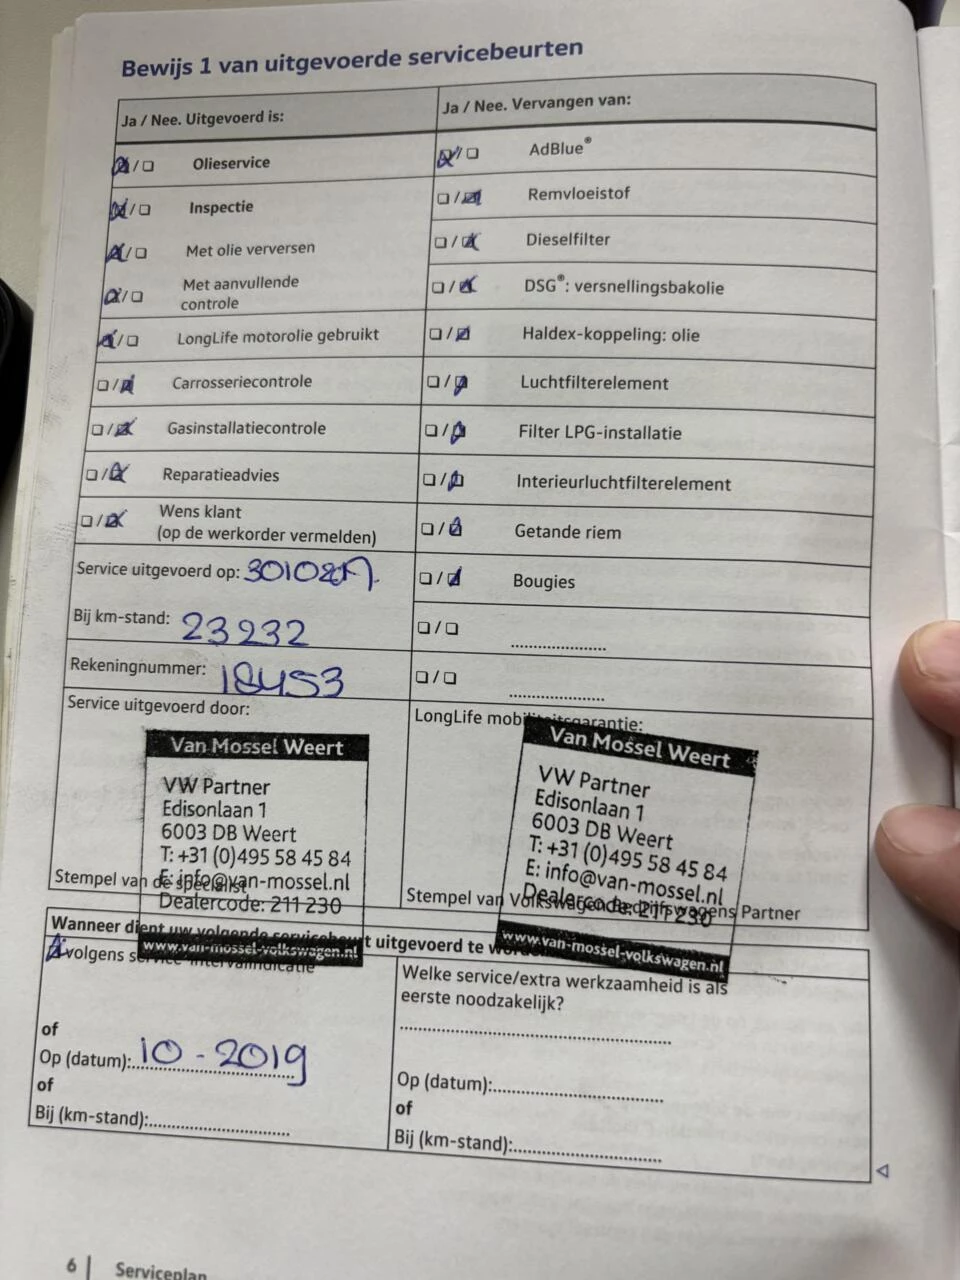 Bewijs 1 van uitgevoerde servicebeurten
Ja / Nee. Uitgevoerd is:
Olieservice
Inspectie
Met olie verversen
Met aanvullende
controle
LongLife motorolie gebruikt
Carrosseriecontrole
Gasinstallatiecontrole
Reparatieadvies
Wens klant
(op de werkorder vermelden)
Service uitgevoerd op:
Bij km-stand: 23232
Rekeningnummer: 18453
Ja / Nee. Vervangen van:
AdBlue®
Remvloeistof
Dieselfilter
DSG®: versnellingsbakolie
Haldex-koppeling: olie
Luchtfilterelement
Filter LPG-installatie
Interieurluchtfilterelement
Getande riem
Bougies
Service uitgevoerd door:
Van Mossel Weert
VW Partner
Edisonlaan 1
6003 DB Weert
T: +31 (0)495 58 45 84
E: info@van-mossel.nl
Dealercode: 211 230
www.van-mossel-volkswagen.nl
Stempel van de specialist
LongLife mobiliteitsgarantie:
Van Mossel Weert
VW Partner
Edisonlaan 1
6003 DB Weert
T: +31 (0)495 58 45 84
E: info@van-mossel.nl
Dealercode: 211 230
www.van-mossel-volkswagen.nl
Stempel van Volkswagen Bedrijfswagens Partner
Wanneer dient uw volgende servicebeurt uitgevoerd te
volgens service-intervalindicatie
of
Op (datum): 10 - 2019
of
Bij (km-stand):
Welke service/extra werkzaamheid is als
eerste noodzakelijk?
Op (datum):
of
Bij (km-stand):
6 | Serviceplan